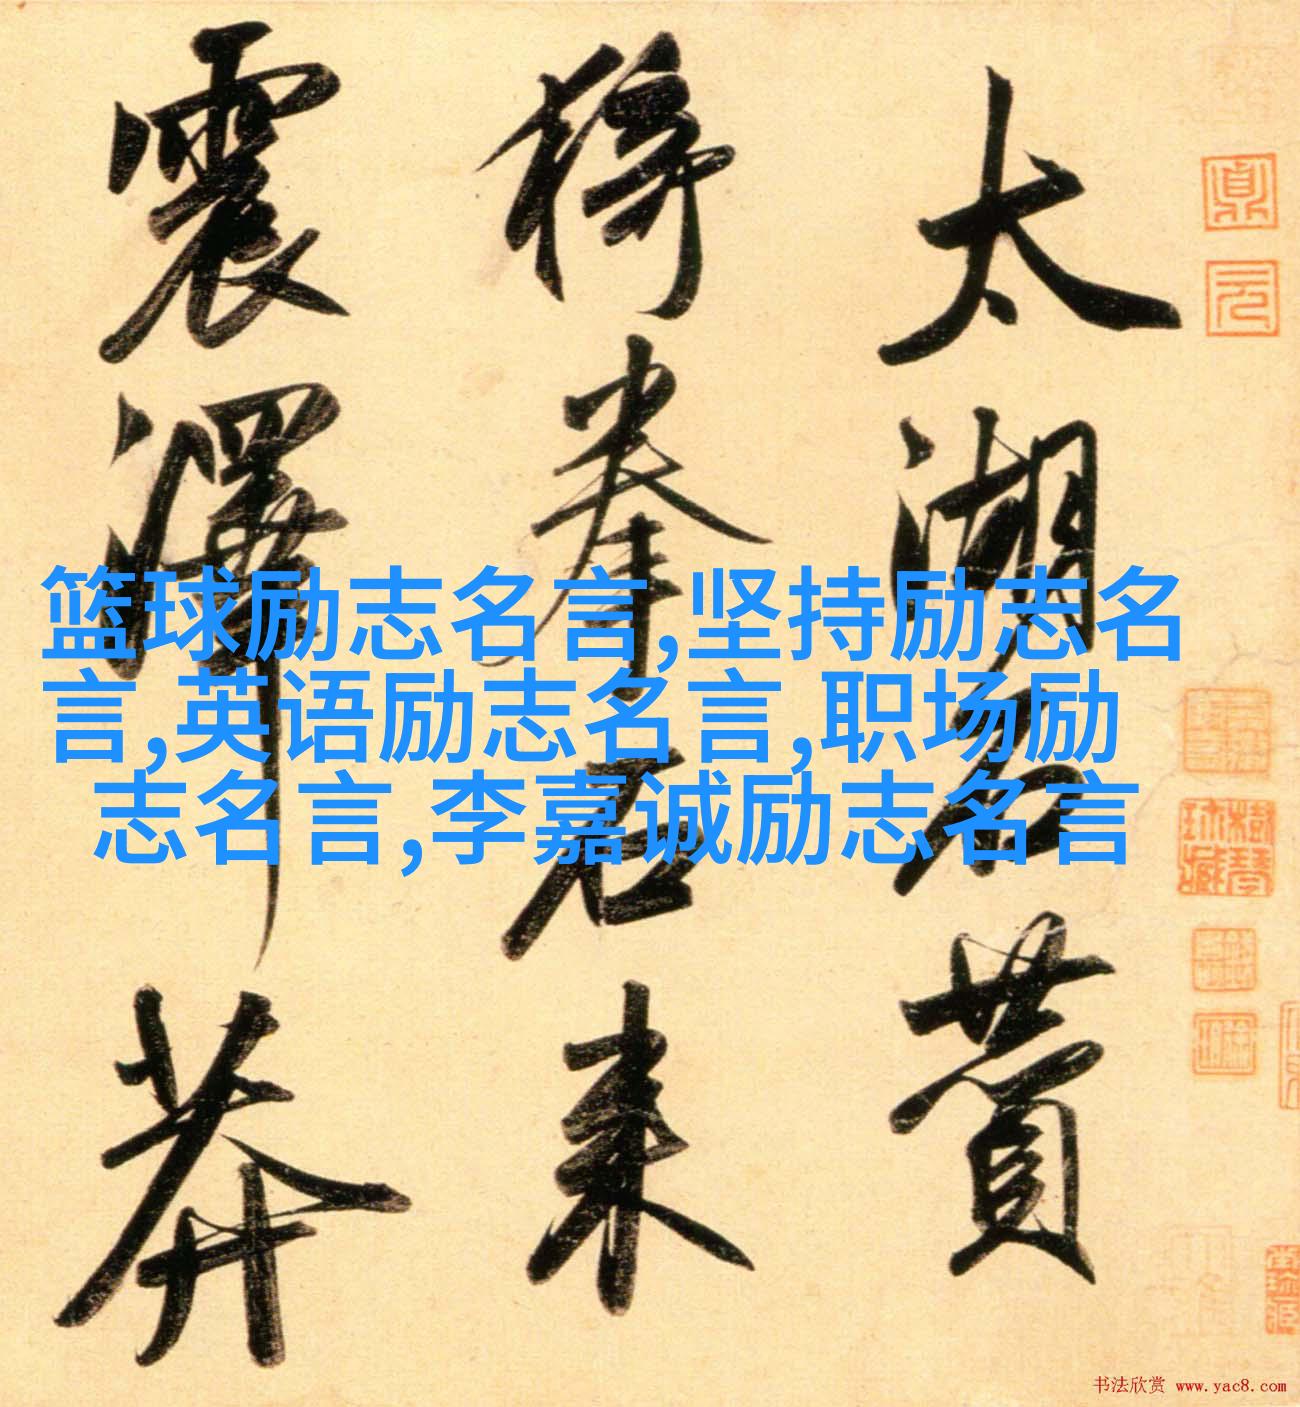 太湖石贊
猗拳石来
震澤莽
篮球励志名言,坚持励志名
言,英语励志名言,职场励
志名言,李嘉诚励志名言
书法欣赏 www.yac8.com